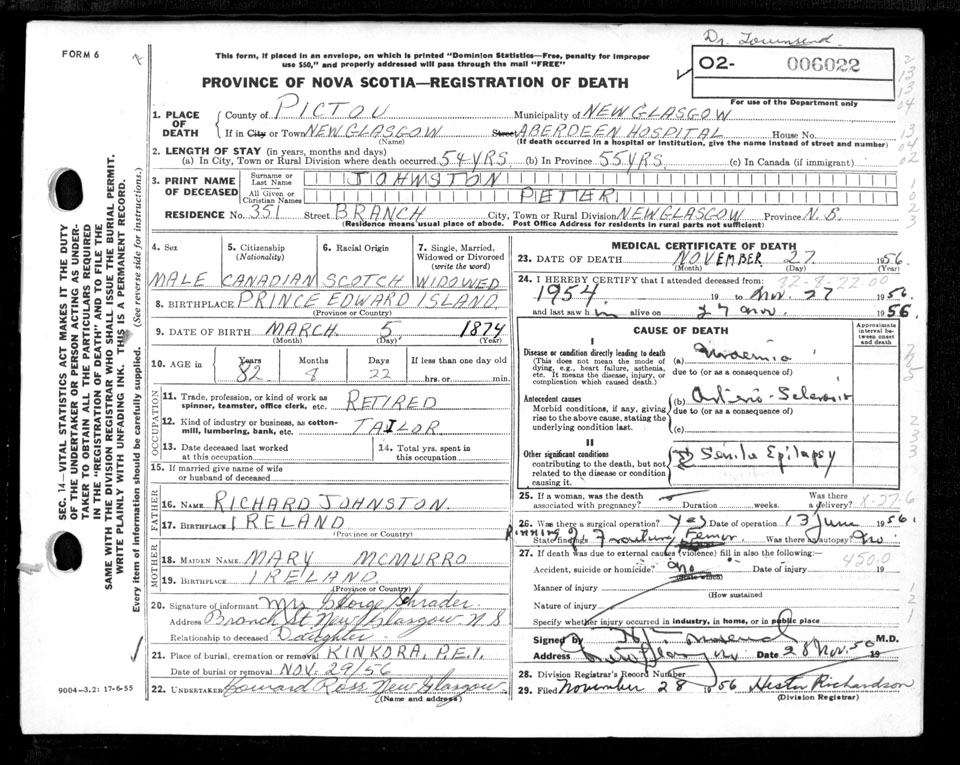 Dr. Townsend
FORM 6
This form, if placed in an envelope, on which is printed "Dominion Statistics—Free, penalty for improper
use $50," and properly addressed will pass through the mail "FREE"
O2- 006022
For use of the Department only
PROVINCE OF NOVA SCOTIA—REGISTRATION OF DEATH
1. PLACE OF DEATH County of PICTOU Municipality of NEW GLASGOW
If in City or Town NEW GLASGOW Street ABERDEEN HOSPITAL House No.
(Name) (If death occurred in a hospital or institution, give the name instead of street and number)
2. LENGTH OF STAY (in years, months and days)
(a) In City, Town or Rural Division where death occurred 54 YRS. (b) In Province 55 YRS. (c) In Canada (if immigrant)
3. PRINT NAME OF DECEASED Surname or Last Name JOHNSTON
All Given or Christian Names PETER
RESIDENCE No. 351 Street BRANCH City, Town or Rural Division NEW GLASGOW Province N.S.
(Residence means usual place of abode. Post Office Address for residents in rural parts not sufficient)
4. Sex 5. Citizenship (Nationality) 6. Racial Origin 7. Single, Married, Widowed or Divorced (write the word)
MALE CANADIAN SCOTCH WIDOWED
8. BIRTHPLACE PRINCE EDWARD ISLAND
(Province or Country)
9. DATE OF BIRTH MARCH 5 1874
(Month) (Day) (Year)
10. AGE in Years Months Days If less than one day
82 8 22 hrs. or min.
OCCUPATION
11. Trade, profession, or kind of work as spinner, teamster, office clerk, etc. RETIRED
12. Kind of industry or business, as cotton-mill, lumbering, bank, etc. TAILOR
13. Date deceased last worked at this occupation 14. Total yrs. spent in this occupation
15. If married give name of wife or husband of deceased
FATHER
16. NAME RICHARD JOHNSTON
17. BIRTHPLACE IRELAND
(Province or Country)
MOTHER
18. MAIDEN NAME MARY MCMURRO
19. BIRTHPLACE IRELAND
(Province or Country)
20. Signature of informant Mrs George Schrader
Address Branch St New Glasgow N S
Relationship to deceased Daughter
21. Place of burial, cremation or removal KINKORA, P.E.I.
Date of burial or removal NOV. 29/56
22. UNDERTAKER Howard Ross New Glasgow
(Name and address)
MEDICAL CERTIFICATE OF DEATH
23. DATE OF DEATH NOVEMBER 27 1956
(Month) (Day) (Year)
24. I HEREBY CERTIFY that I attended deceased from: 82-8-22.00
1954 19 to Nov. 27 1956
and last saw h im alive on 27 Nov. 1956
CAUSE OF DEATH
Approximate interval between onset and death
I
Disease or condition directly leading to death (a) Uraemia
(This does not mean the mode of dying, e.g., heart failure, asthenia, etc. It means the disease, injury, or complication which caused death.) due to (or as a consequence of)
Antecedent causes (b) Arterio-Sclerosis
Morbid conditions, if any, giving rise to the above cause, stating the underlying condition last. due to (or as a consequence of)
(c)
II
Other significant conditions contributing to the death, but not related to the disease or condition causing it. Senile Epilepsy
25. If a woman, was the death associated with pregnancy? Duration weeks. Was there a delivery?
26. Was there a surgical operation? Yes Date of operation 13 June 1956
State findings Pinning of Fracture Femur Was there autopsy? No
27. If death was due to external causes (violence) fill in also the following:
Accident, suicide or homicide? No Date of injury 19
450.0
(State which)
Manner of injury
(How sustained
Nature of injury
Specify whether injury occurred in industry, in home, or in public place
Signed by M.D.
Address New Glasgow NS Date 28 Nov. 56 19
28. Division Registrar's Record Number
29. Filed November 28 1956 Hester Richardson
(Division Registrar)
SEC. 14—VITAL STATISTICS ACT MAKES IT THE DUTY
OF THE UNDERTAKER OR PERSON ACTING AS UNDER-
TAKER TO OBTAIN ALL THE PARTICULARS REQUIRED
IN THE "REGISTRATION OF DEATH" AND TO FILE THE
SAME WITH THE DIVISION REGISTRAR WHO SHALL ISSUE THE BURIAL PERMIT.
WRITE PLAINLY WITH UNFADING INK. THIS IS A PERMANENT RECORD.
Every item of information should be carefully supplied. (See reverse side for instructions.)
9004—3.2: 17-6-55